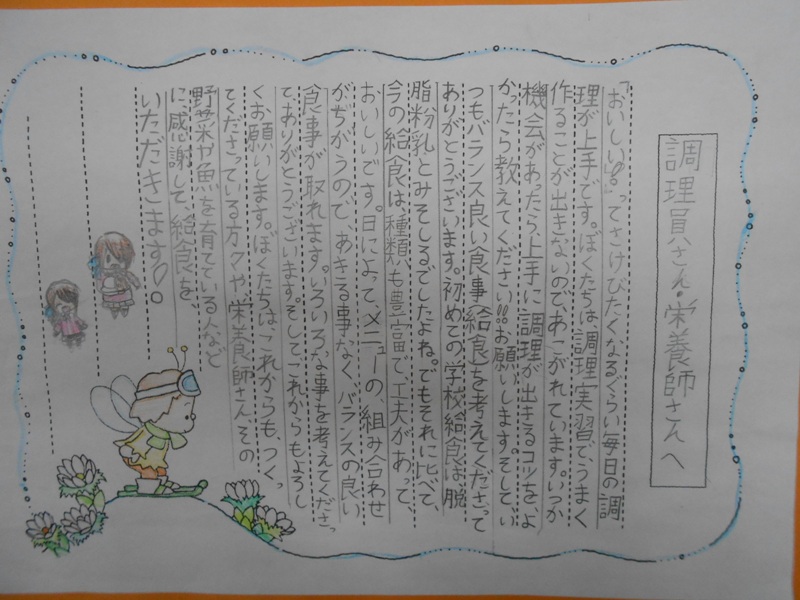 調理員さん・栄養師さんへ
「おいしい。」ってさけびたくなるぐらい毎日の調
理が上手です。ぼくたちは、調理実習で、うまく
作ることが出きないので、あこがれています。いつか
機会があったら、上手に調理が出きるコツを、よ
かったら教えてください!!お願いします。そして、い
つもバランス良い食事(給食)を考えてくださって
ありがとうございます。初めての学校給食は、脱
脂粉乳とみそしるでしたよね。でもそれに比べて、
今の給食は、種類も豊富で、工夫があって、
おいしいです。日によって、メニューの、組み合わせ
がちがうので、あきる事なく、バランスの良い
食事が取れます。いろいろな事を考えてくださっ
てありがとうございます。そしてこれからもよろし
くお願いします。ぼくたちはこれからも、つくっ
てくださっている方々や栄養師さん、その
野菜や魚を育てている人など
に、感謝して、給食を、
いただきます♡。